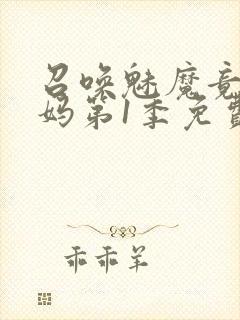 召唤魅魔竟
妈第1季免费
乖乖羊